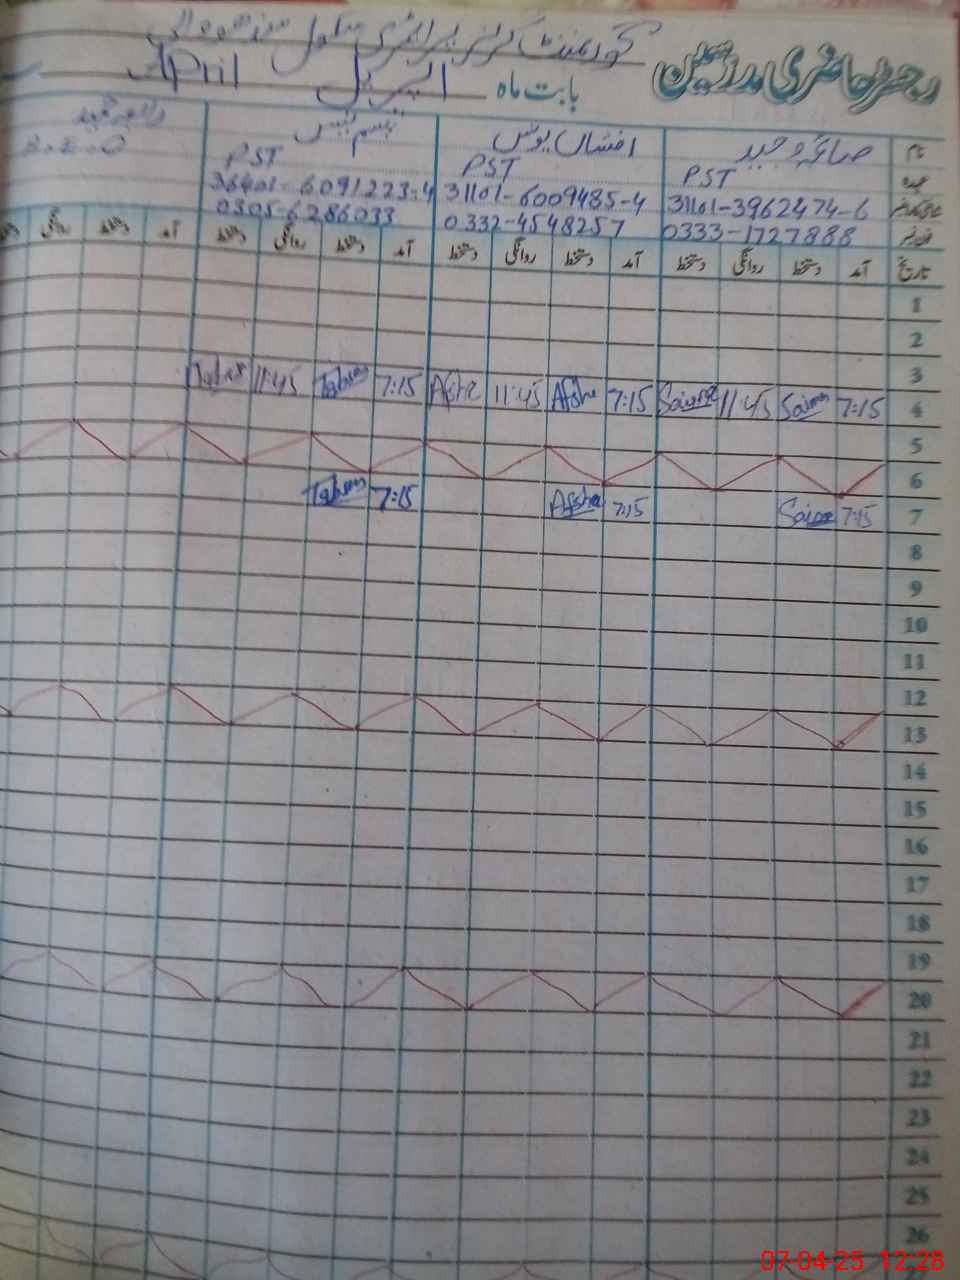 گورنمنٹ گرلز پرائمری سکول
رجسٹر حاضری مدرسین
بابت ماہ اپریل April
نام صائمہ وحید افشاں یونس
عہدہ PST PST PST
31101-3962474-6 31101-6009485-4 36401-6091223-4
فون نمبر 0333-1727888 0332-4548257 0305-6286033
تاریخ آمد دستخط روانگی دستخط آمد دستخط روانگی دستخط آمد دستخط روانگی دستخط آمد دستخط روانگی دستخط
1
2
3
4 7:15 Saima 11:45 Saima 7:15 Afsha 11:45 Afsha 7:15 Tabsm 11:45
5
6
7 7:15 Saima 7:15 Afsha 7:15 Tabsm
8
9
10
11
12
13
14
15
16
17
18
19
20
21
22
23
24
25
26
07-04-25 12:28